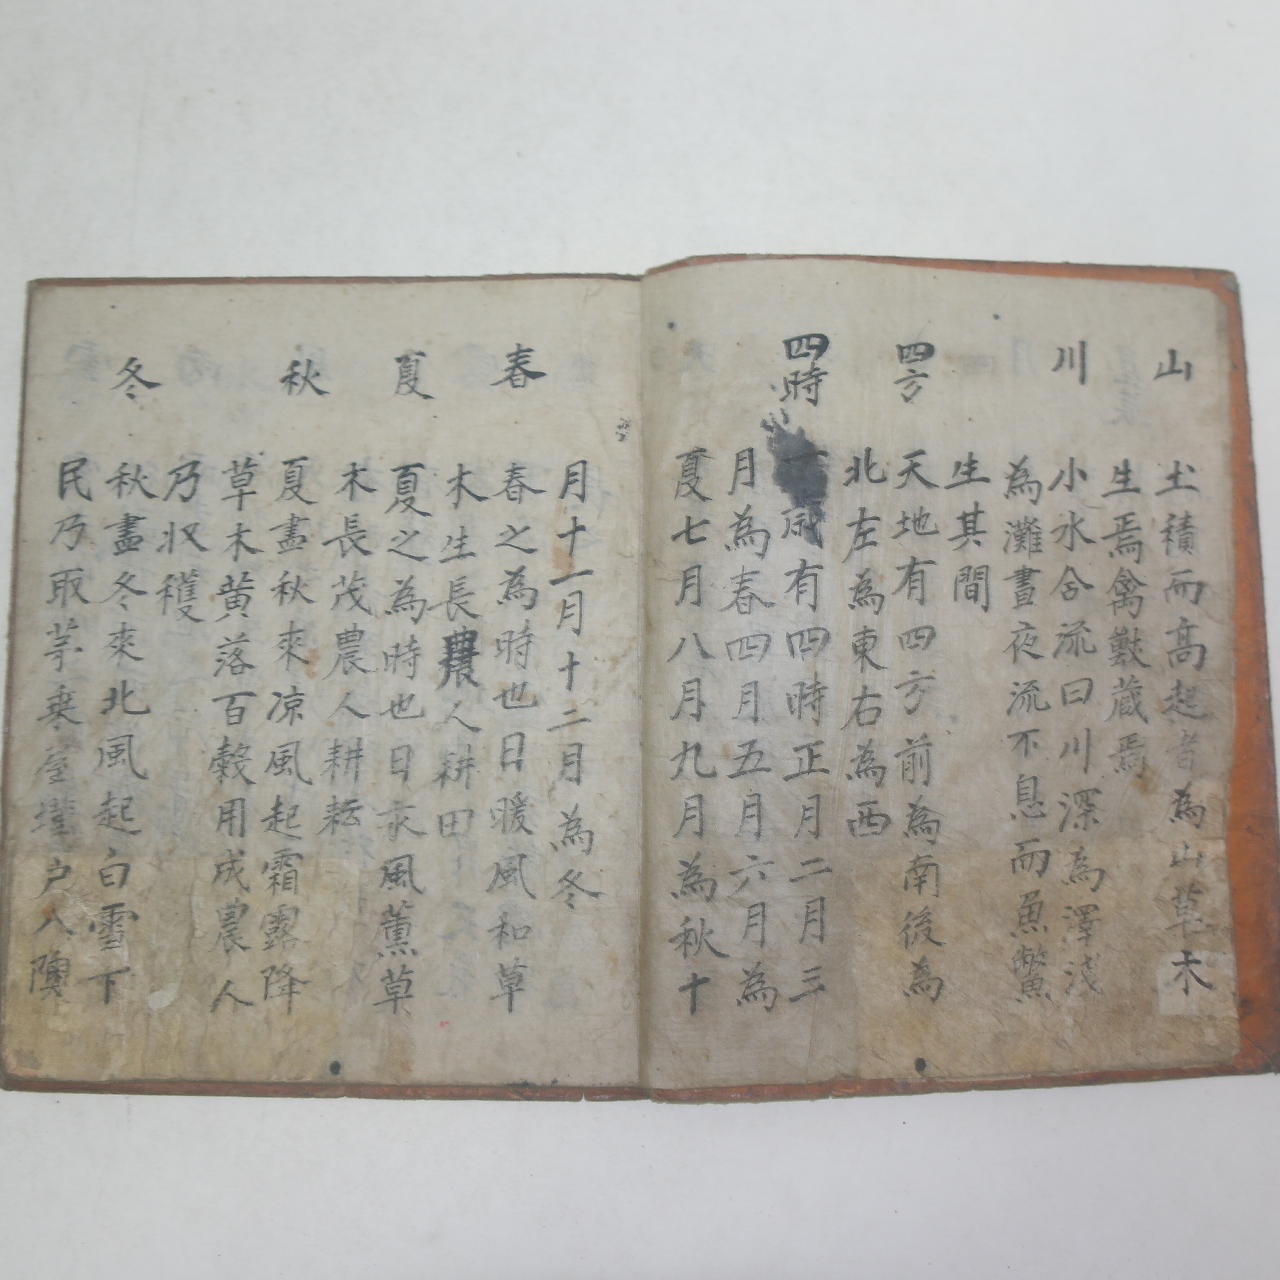 山
土積而高起者為山草木
生焉禽獸蔵焉
川
小水合流曰川深為澤淺
為灘晝夜流不息而魚鱉
生其間
四方
天地有四方前為南後為
北左為東右為西
四時
一歲有四時正月二月三
月為春四月五月六月為
夏七月八月九月為秋十
月十一月十二月為冬
春
春之為時也日暖風和草
木生長農人耕田
夏
夏之為時也日永風薰草
木長茂農人耕耘
秋
夏盡秋來凉風起霜露降
草木黄落百穀用成農人
乃収穫
冬
秋盡冬來北風起白雪下
民乃取茅乘屋墐户入隩